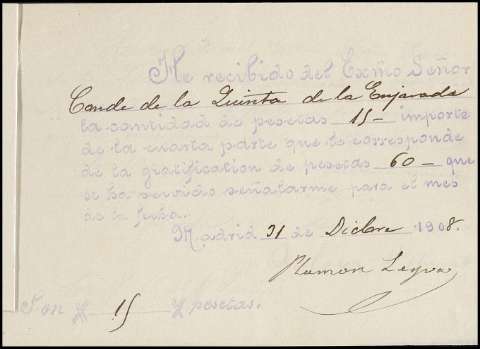 He recibido del Exmo Señor
Conde de la Quinta de la Enjarada
la cantidad de pesetas 15- importe
de la cuarta parte que le corresponde
de la gratificación de pesetas 60- que
se ha servido señalarme para el mes
de la fecha.
Madrid 31 de Dicbre 1908.
Ramon Leyva
Son # 15 # pesetas.